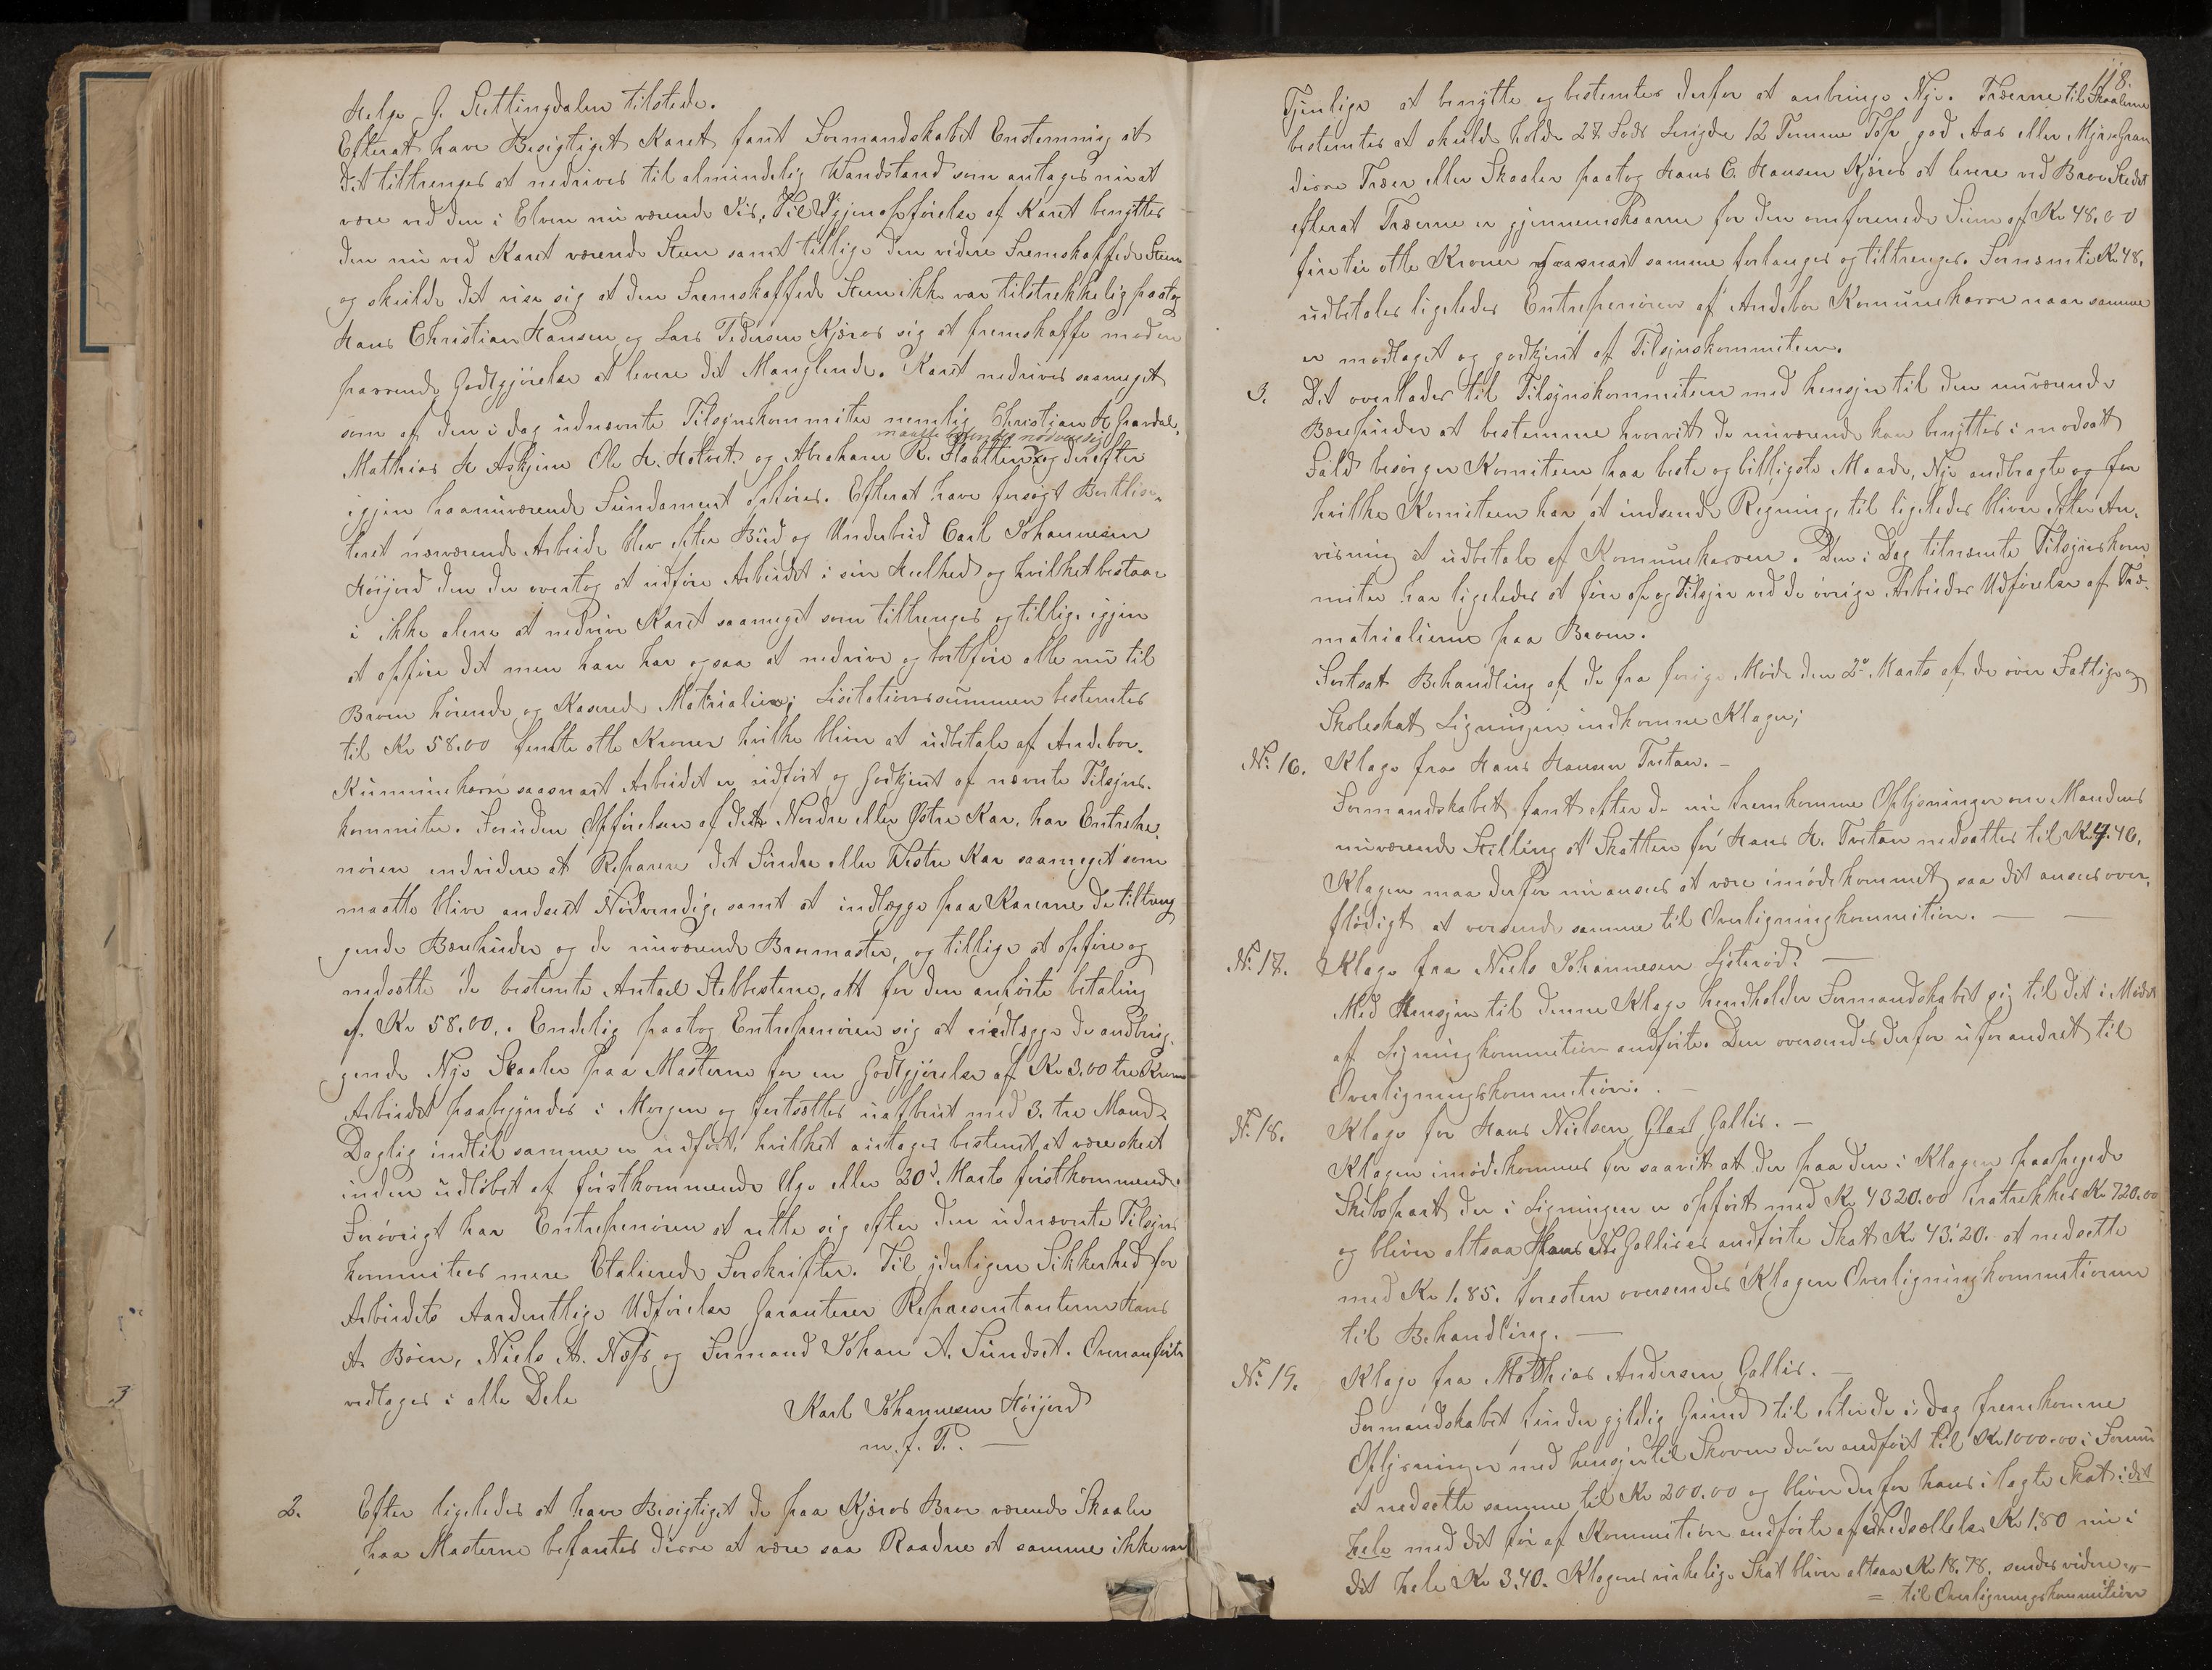 Helge G. Stettingdalen tilstede.
Efterat have Besigtiget Karet fant Formandskabet Enstemmig at
det tiltrenges at nedrives til almindelig Wandstand som antages nu at
være ved den i Elven nu værende Iis, Til Igjenopførelse af Karet benyttes
den nu ved Karet værende Steen samt tillige den videre Fremskaffede Steen
og skulde det vise sig at den Fremskaffede Steen ikke var tilstrekkelig paatog
Hans Christian Hansen og Lars Pedersen Kjæraas sig at fremskaffe mod en
passende Godtgjørelse at levere det Manglende. Karet nedrives saameget
som af den i dag udnævnte Tilsynskommitee nemlig Christian H Gravdal,
maatte befindes nødvendig
Mathias H Askjem Ole H. Holvet og Abraham R. Flaatten og derefter
igjen paa nuværende Fundament opføres. Efterat have forsøgt Bortlisi-
teret nærværende Arbeide blev efter Bud og Underbud Carl Johannesen
Høijord den der overtog at udføre Arbeidet i sin Heelhed og hvilket bestaar
i ikke alene at nedrive Karet saameget som tiltrenges og tillige igjen
at opføre det men han har ogsaa at nedrive og bortføre alle nu til
Broen hørende og Kaserede Matrialier; Lisitationssummen bestemtes
til Kr 58.00 femti otte Kroner hvilke bliver at udbetale af Andebo-
Kummunekasse saasnart Arbeidet er udført og Godkjent af nævnte Tilsyns-
kommitee. Foruden Opførelsen af dette Nordre eller Østre Kar, har Entrepe-
nøren endvidere at Reparere det Søndre eller Westre Kar saameget som
maatte blive andseet Nødvendige samt at indlægge paa Karerne de tiltreng
gende Bærepuder og de nuværende Bromaster, og tillige at opføre og
nedsætte de bestemte Antael Stebbestene, alt for den anførte betaling
af Kr 58.00. Endelig paatog Entrepenøren sig at inedlægge de andbrin-
gende Nye Skaaler paa Masterne for en Godtgjørelse af Kr 3.00 tre Kroner
Arbeidet paabegyndes i Morgen og fortsættes uafbrut med 3. tre Mand
Daglig indtil samme er udført, hvilket antages bestemt at være skeet
inden udløbet af førstkommende Uge eller 20d. Marts førstkommende.
Forøvrigt har Entrepenøren at rette sig efter den udnævnte Tilsyns
kommitees mere Etalierede Forskrifter. Til yderligere Sikkerhed for
Arbeidets Aardentlige Udførelse Garanterer Repræsentanterne Hans
A. Bøen, Niels A. Næss og Formand Johan A. Sundset. Ovenanførte
vedtages i alle Dele
Karl Johannesen Høijord
m. f. P. —
2. Efter ligeledes at have Besigtiget de paa Kjæraas Broe værende Skaaler
paa Masterne befantes disse at være saa Raadne at samme ikke var
118.
Tjenlige at benytte og bestemtes derfor at anbringe Nye. Træerne til Skaalerne
bestemtes at skulde holde 27 Fods Lengde 12 Tomme Top god Aas eller Myr Gran
disse Træer eller Skaaler paatog Hans C. Hansen Kjæraas at levere ved Broe Stedet
efterat Træerne er gjennemskaarne for den omforenede Sum af Kr 48.00
føreti otte Kroner saasnart samme forlanges og tiltrenges. Fornemte Kr 48.
udbetales ligeledes Entrepenøren af Andebo Komunekasse naar samme
er modtaget og godkjent af Tilsynskommiteen.
3. Det overlades til Tilsynskommiteen med hensyn til den nuværende
Bærepuder at bestemme hvorvit de nuværende kan benyttes i modsatt
Fald besørger Komiteen paa beste og billigste Maade, Nye andbragte og for
hvilke Komiteen har at indsende Regning, til ligeledes bliver efter An-
visning at udbetale af Komunekassen. Den i Dag titnæmte Tilsynskom
mitee har ligeledes at føre op og Tilsyn ved de øvrige Arbeides Udførelse af Træ-
matrialierne paa Broen.
Fortsat Behandling af de fra forige Møde den 2d Marts af de over Fattige og
Skoleskat Ligningen indkomne Klager;
No. 16. Klage fra Hans Hansen Tretan. —
Formandskabet fant efter de nu fremkomne Oplysninger om Mandens
nuværende Stilling at Skatten for Hans H. Tretan nedsættes til Kr 4.40.
Klagen maa derfor nu ansees at være imødekommet saa det ansees over-
flødigt at oversende samme til Overligningskommition. —
No. 17. Klage fra Niels Johannesen Lysterød. —
Med Hensyn til denne Klage henholder Formandskabet sig til det i Mødet
af Ligningkommition andførte. Den oversendes derfor uforandret til
Overligningskommition. —
No. 18. Klage for Hans Nielsen Gallis. —
Klagen imødekommes for saavit at der paa den i Klagen paapegede
Skibspart der i Ligningen er opført med Kr 4320.00 fratrekkes Kr 720.00
og bliver altsaa Hans N. Gallises andførte Skat Kr 43.20. at nedsette
med Kr 1.85. foresten oversendes Klagen Overligningkommitionen
til Behandling. —
No. 19. Klage fra Mathias Andersen Gallis. —
Formandskabet finder gyldig Grund til efter de i dag fremkomne
Oplysninger med hensyn til Skoven der er andført til Kr 1000.00 i Formu
at nedsette samme til Kr 200.00 og bliver derfor hans ilagte Skat i det
hele med det før af Kommition andførte afnedsættelse Kr 1.80 nu i
det hele Kr 3.40. Klagens virkelige Skat bliver altsaa Kr 18.78. sendes videre „
= til Overligningskommition